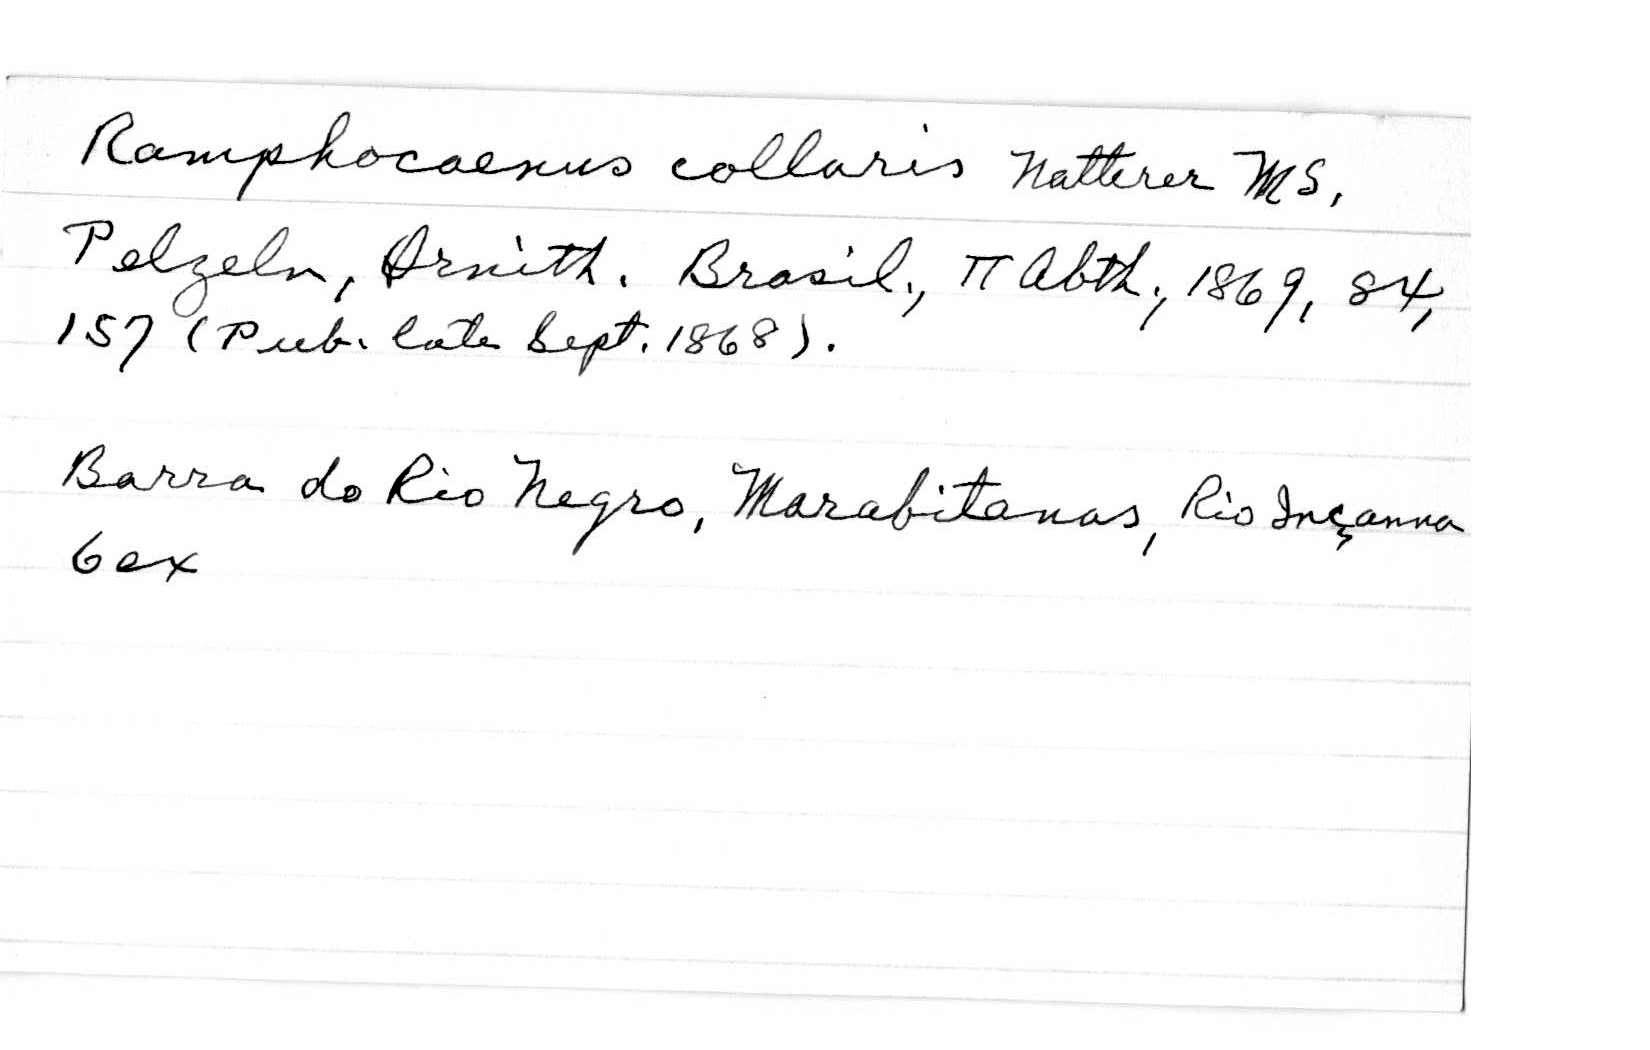 Ramphocaenus collaris Natterer MS,
Pelzeln, Ornith. Brasil., II Abth., 1869, 84,
157 (Pub. late Sept. 1868).
Barra do Rio Negro, Marabitanas, Rio Inçanna
6 ex